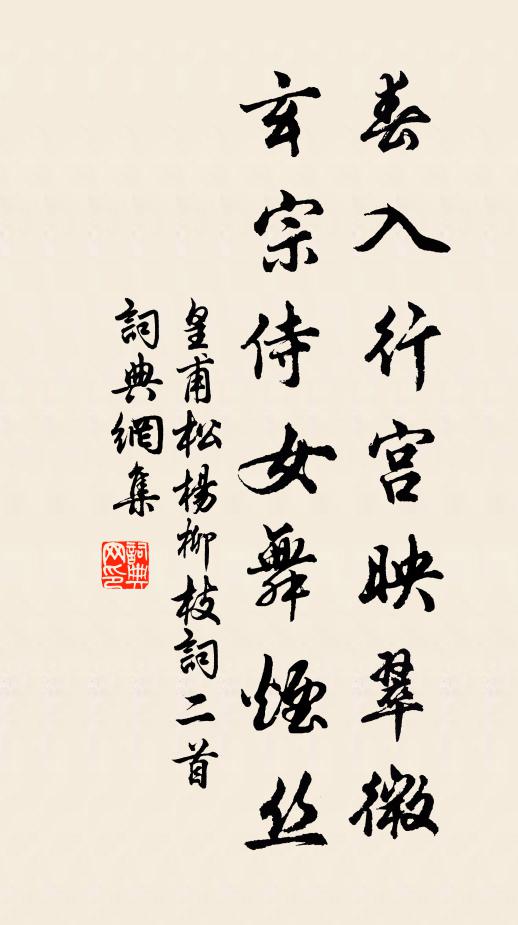 春入行宫映翠微
玄宗侍女舞煙丝
皇甫松楊柳枝詞二首
詞典網集
詞典网印